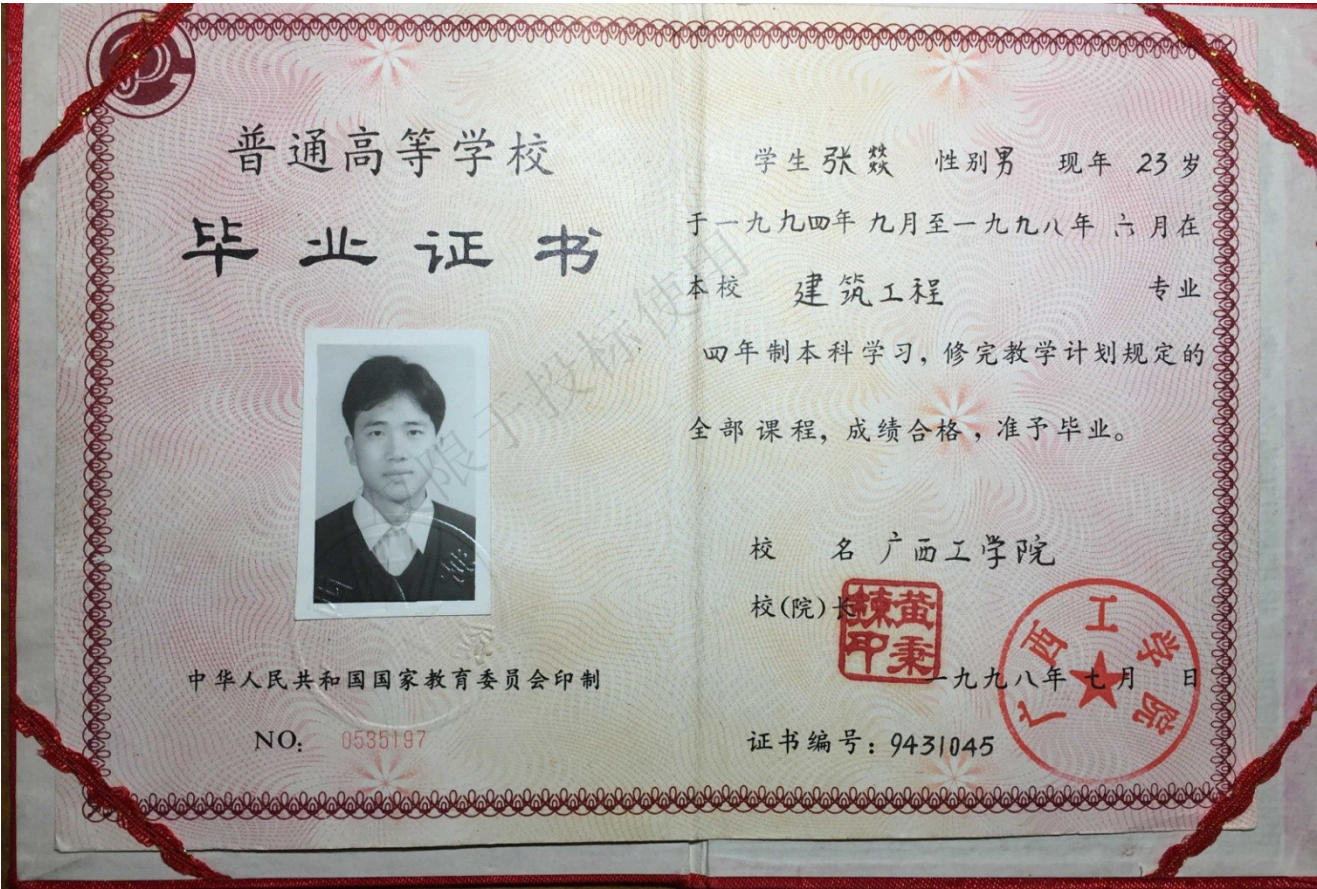 普通高等学校
毕业证书
中华人民共和国国家教育委员会印制
NO: 0535197
学生 张燚 性别 男 现年 23 岁
于一九九四年 九月至一九九八年 六 月在
本校 建筑工程 专业
四年制本科学习,修完教学计划规定的
全部课程,成绩合格,准予毕业。
校 名 广西工学院
校(院)长
黄秉
印
一九九八年 七月 日
广西工学院
证书编号:9431045
限于投标使用